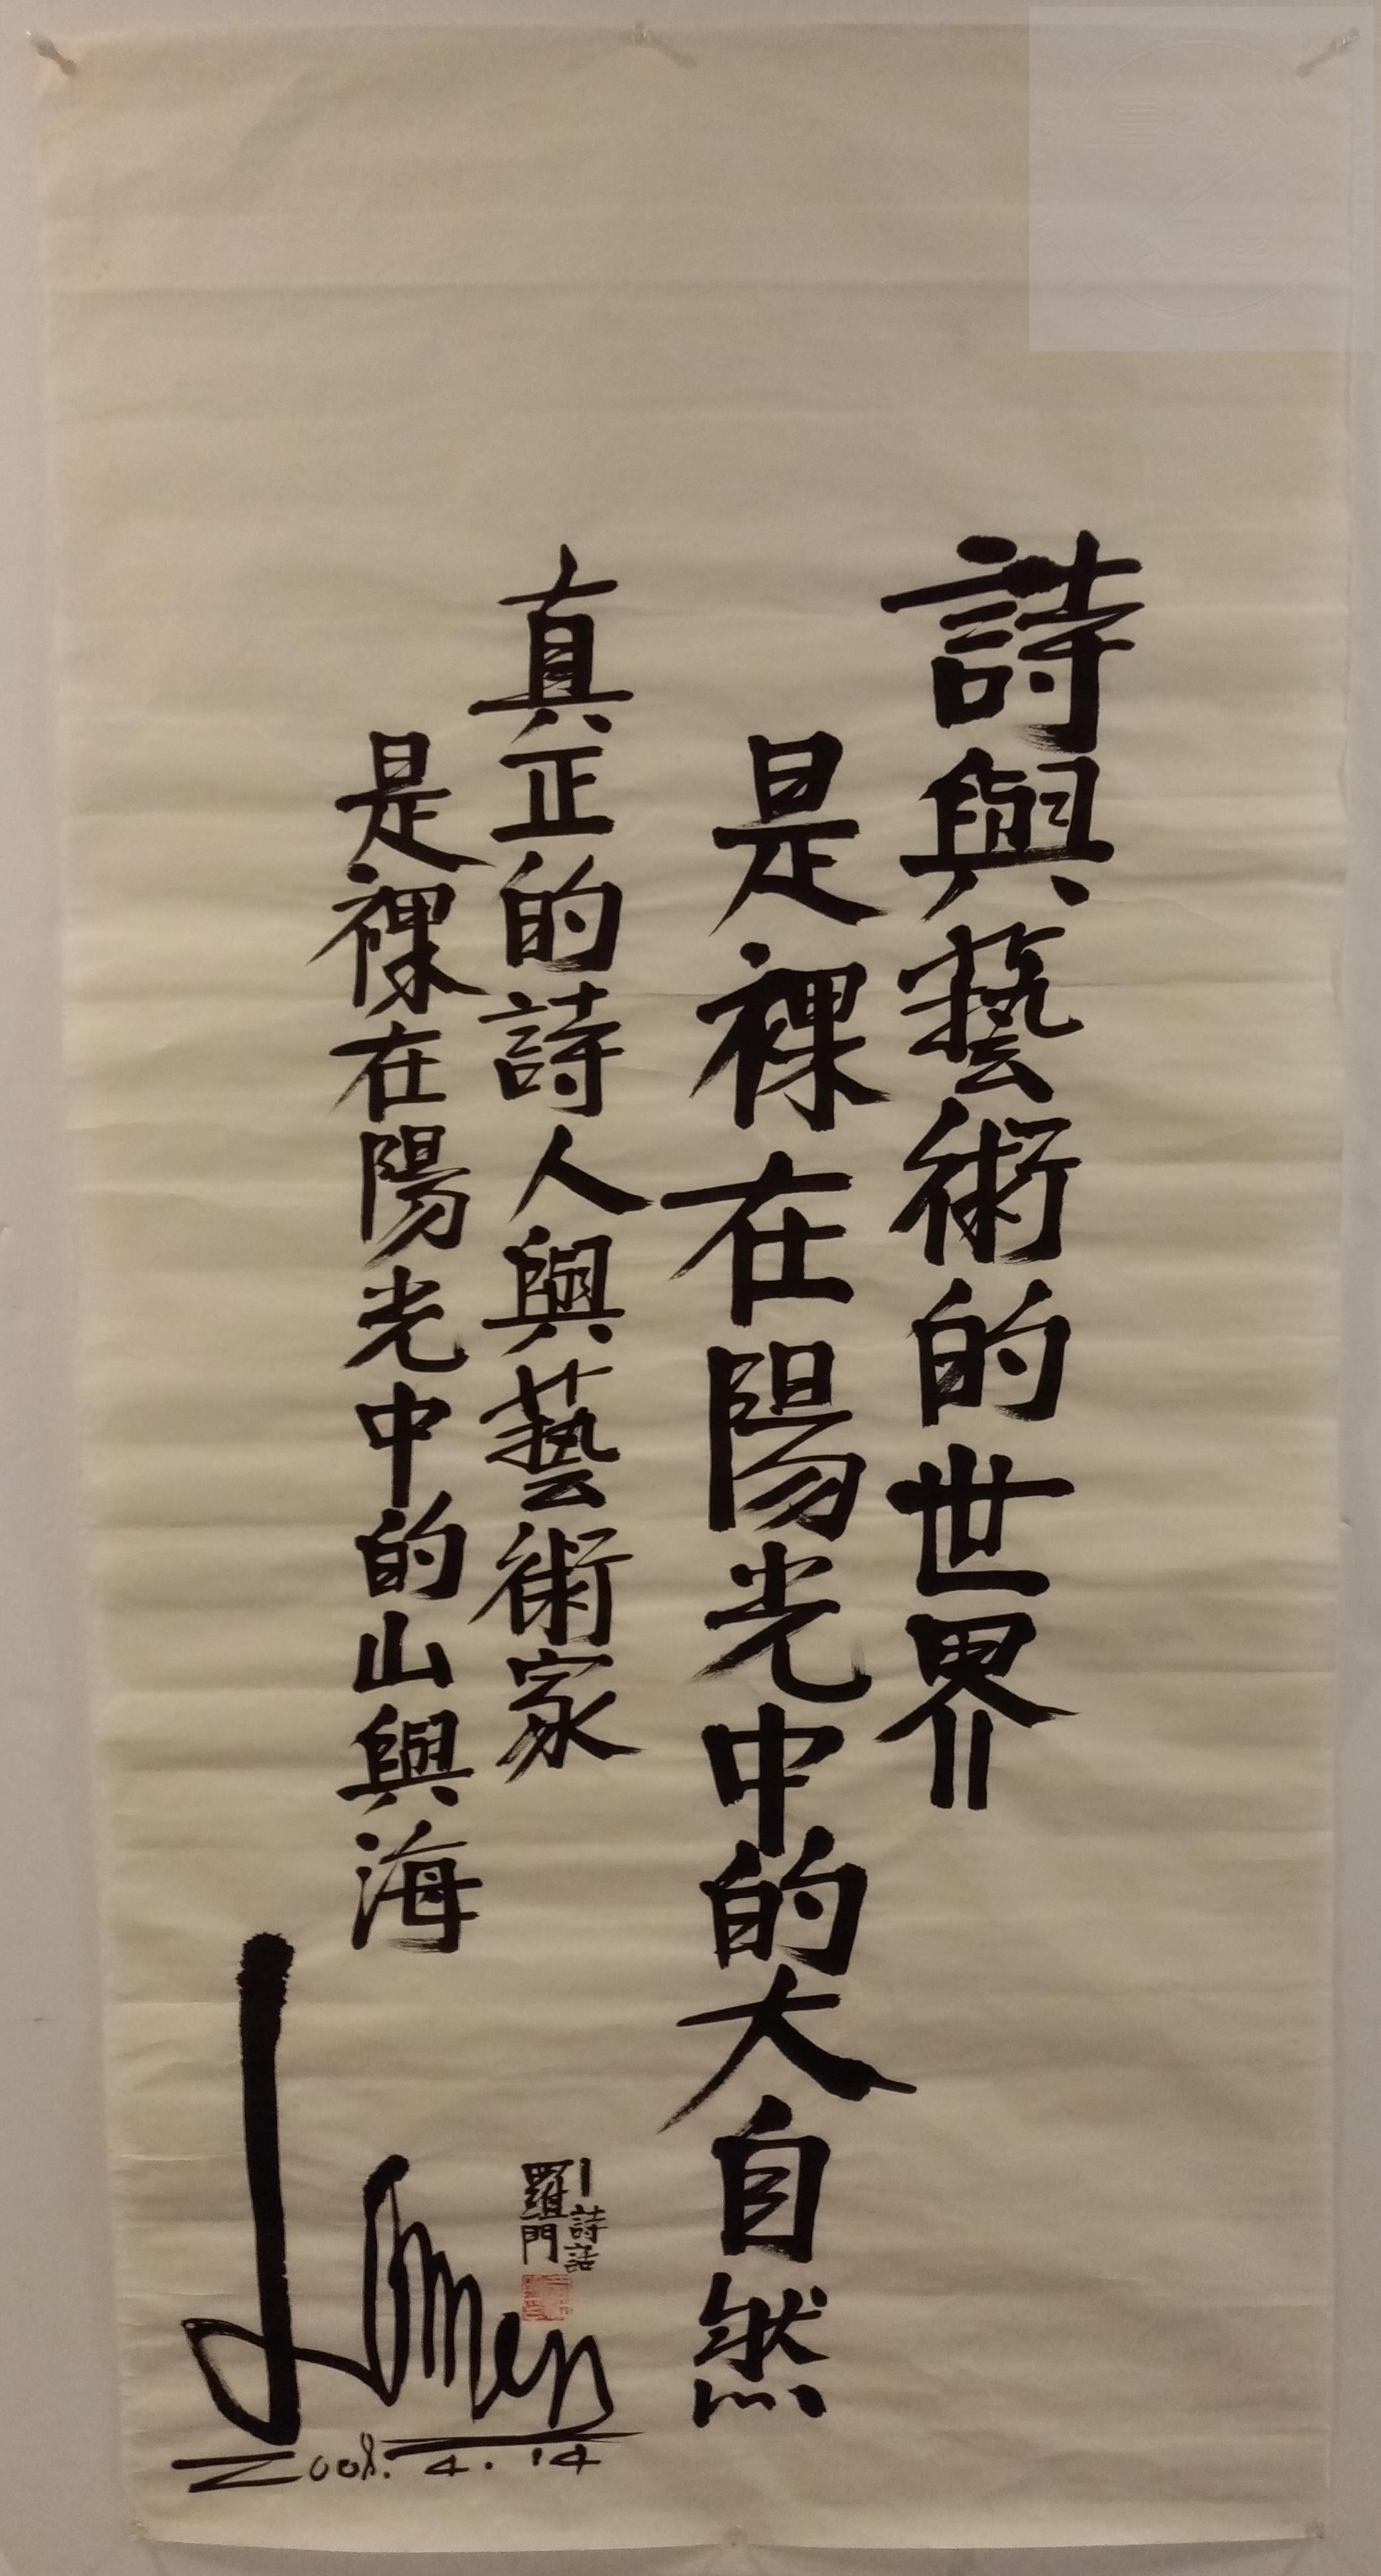 詩與藝術的世界
是裸在陽光中的大自然
真正的詩人與藝術家
是裸在陽光中的山與海
詩話
羅門
Lomen
2008.4.14